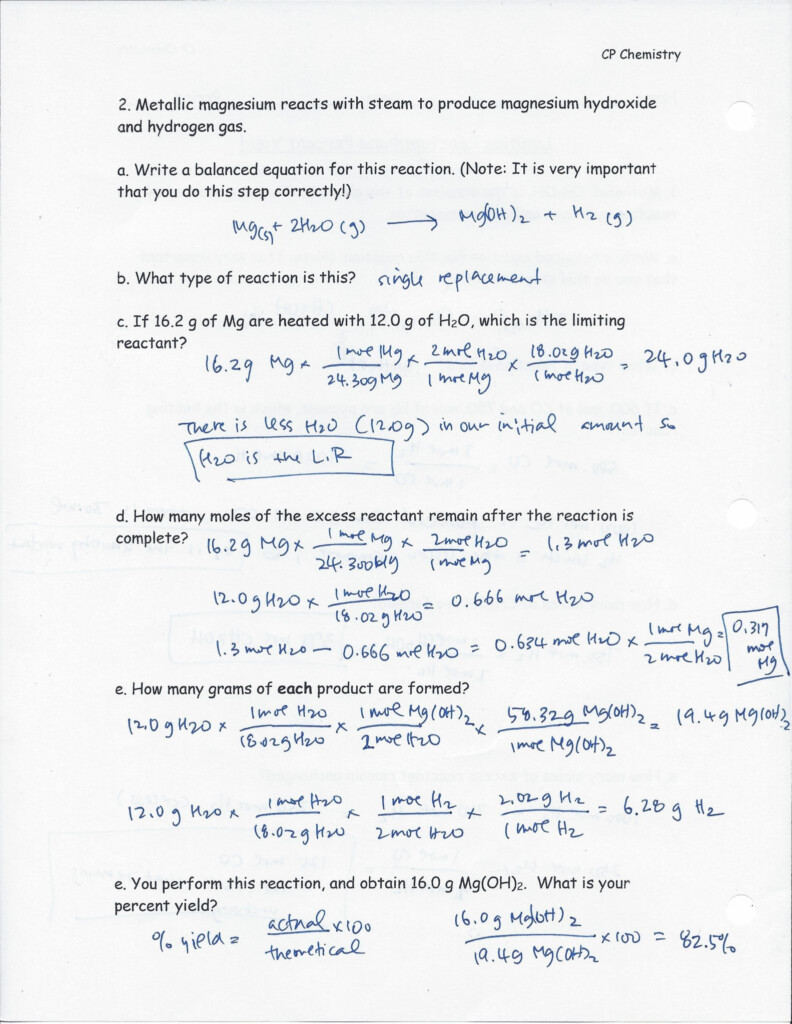 CP Chemistry
2. Metallic magnesium reacts with steam to produce magnesium hydroxide
and hydrogen gas.
a. Write a balanced equation for this reaction. (Note: It is very important
that you do this step correctly!)
Mg(s) + 2H2O (g) ⟶ Mg(OH)2 + H2 (g)
b. What type of reaction is this? single replacement
c. If 16.2 g of Mg are heated with 12.0 g of H2O, which is the limiting
reactant?
16.2g Mg × 1 mol Mg / 24.30g Mg × 2 mol H2O / 1 mol Mg × 18.02g H2O / 1 mol H2O = 24.0 g H2O
There is less H2O (12.0g) in our initial amount so
H2O is the L.R
d. How many moles of the excess reactant remain after the reaction is
complete? 16.2g Mg × 1 mol Mg / 24.300 Mg × 2 mol H2O / 1 mol Mg = 1.3 mol H2O
12.0 g H2O × 1 mol H2O / 18.02 g H2O = 0.666 mol H2O
1.3 mol H2O – 0.666 mol H2O = 0.634 mol H2O × 1 mol Mg / 2 mol H2O = 0.317 mol Mg
e. How many grams of each product are formed?
12.0 g H2O × 1 mol H2O / 18.02g H2O × 1 mol Mg(OH)2 / 2 mol H2O × 58.32g Mg(OH)2 / 1 mol Mg(OH)2 = 19.4g Mg(OH)2
12.0 g H2O × 1 mol H2O / 18.02g H2O × 1 mol H2 / 2 mol H2O × 2.02 g H2 / 1 mol H2 = 6.28 g H2
e. You perform this reaction, and obtain 16.0 g Mg(OH)2. What is your
percent yield?
% yield = actual / theoretical × 100
16.0g Mg(OH)2 / 19.4g Mg(OH)2 × 100 = 82.5%